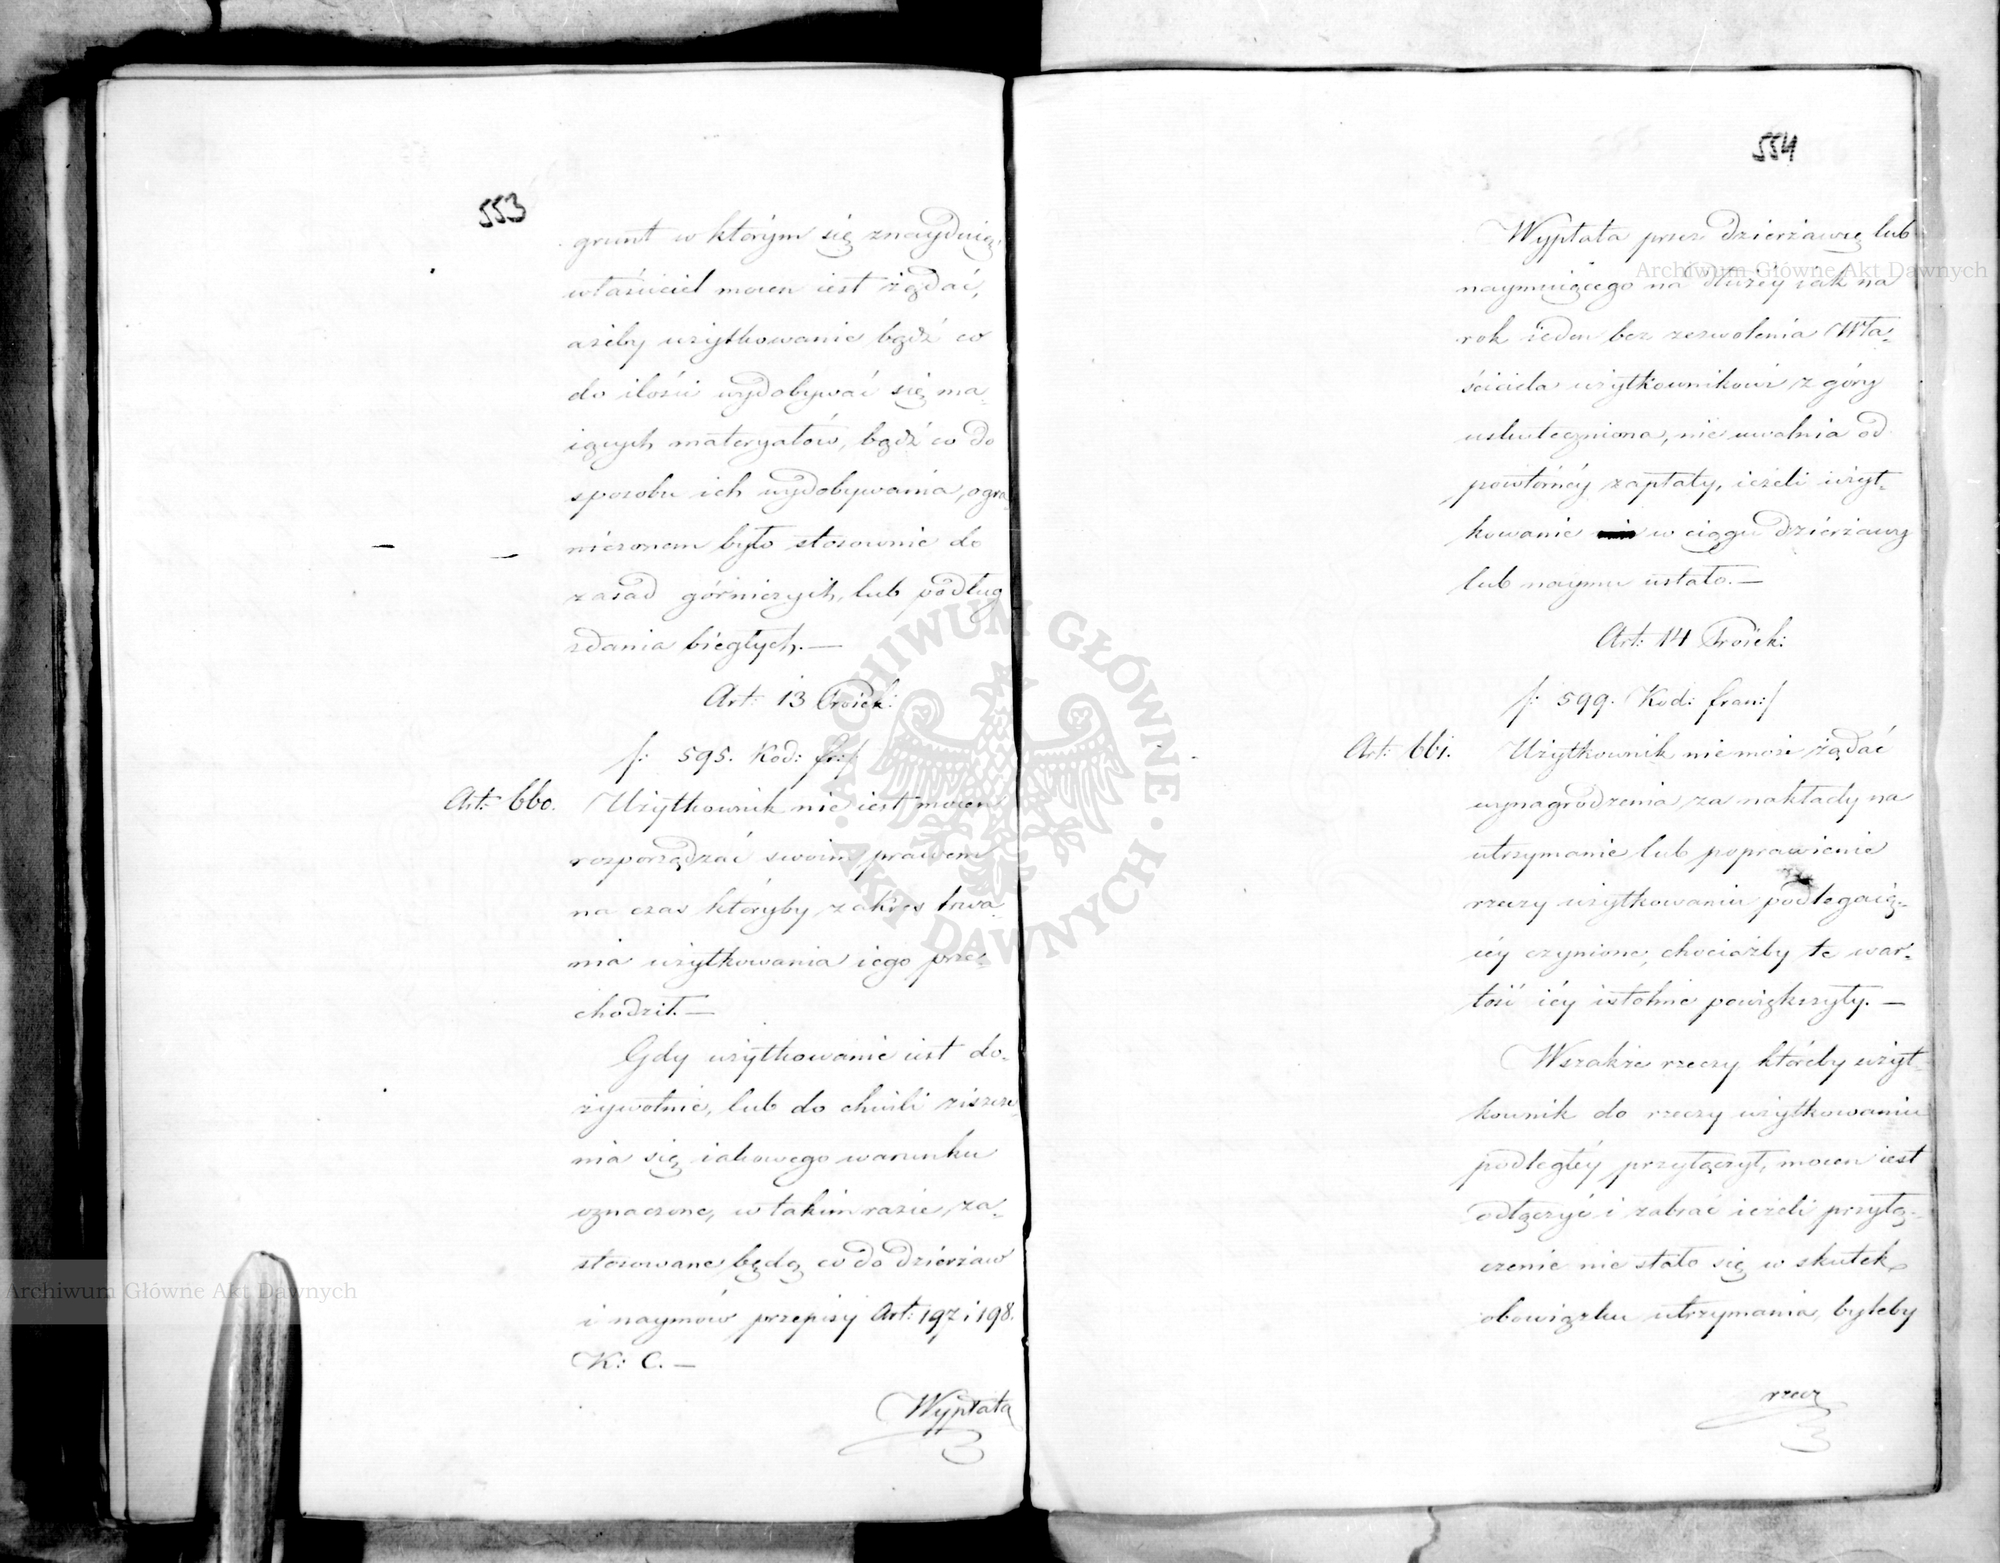 553
grunt w którym się znayduią,
właściciel mocen iest żądać,
ażeby użytkowanie bądź co
do ilości wydobywać się ma-
iących materyałów, bądź co do
sposobu ich wydobywania, ogra-
niczonem było stosownie do
zasad górniczych, lub podług
zdania biegłych. —
Art: 13 Proiek:
/: 595. Kod: fr:/
Art: 660. Użytkownik nie iest mocen
rozporządzać swoim prawem
na czas któryby zakres trwa-
nia użytkowania iego prze-
chodził. —
Gdy użytkowanie iest do-
żywotnie, lub do chwili ziszcze-
nia się iakowego warunku
oznaczone, w takim razie za-
stosowane będą co do dzierżaw
i naymów przepisy Art: 197 i 198.
K: C. —
Wypłata
554
Wypłata przez dzierżawcę lub
naymuiącego na dłużey iak na
rok ieden bez zezwolenia Wła-
ściciela użytkownikowi z góry
uskuteczniona, nie uwalnia od
powtórnéy zapłaty, ieżeli użyt-
kowanie w ciągu dzierżawy
lub naymu ustało. —
Art: 14 Proiek:
/: 599. Kod: fran:/
Art: 661. Użytkownik nie może żądać
wynagrodzenia za nakłady na
utrzymanie lub poprawienie
rzeczy użytkowaniu podlegaią-
céy czynione, chociażby te war-
tość iéy istotnie powiększyły. —
Wszakże rzeczy któreby użyt-
kownik do rzeczy użytkowaniu
podległéy przyłączył, mocen iest
odłączyć i zabrać ieżeli przyłą-
czenie nie stało się w skutek
obowiązku utrzymania, byleby
rzecz
Archiwum Główne Akt Dawnych
Archiwum Główne Akt Dawnych
ARCHIWUM GŁÓWNE · AKT DAWNYCH ·